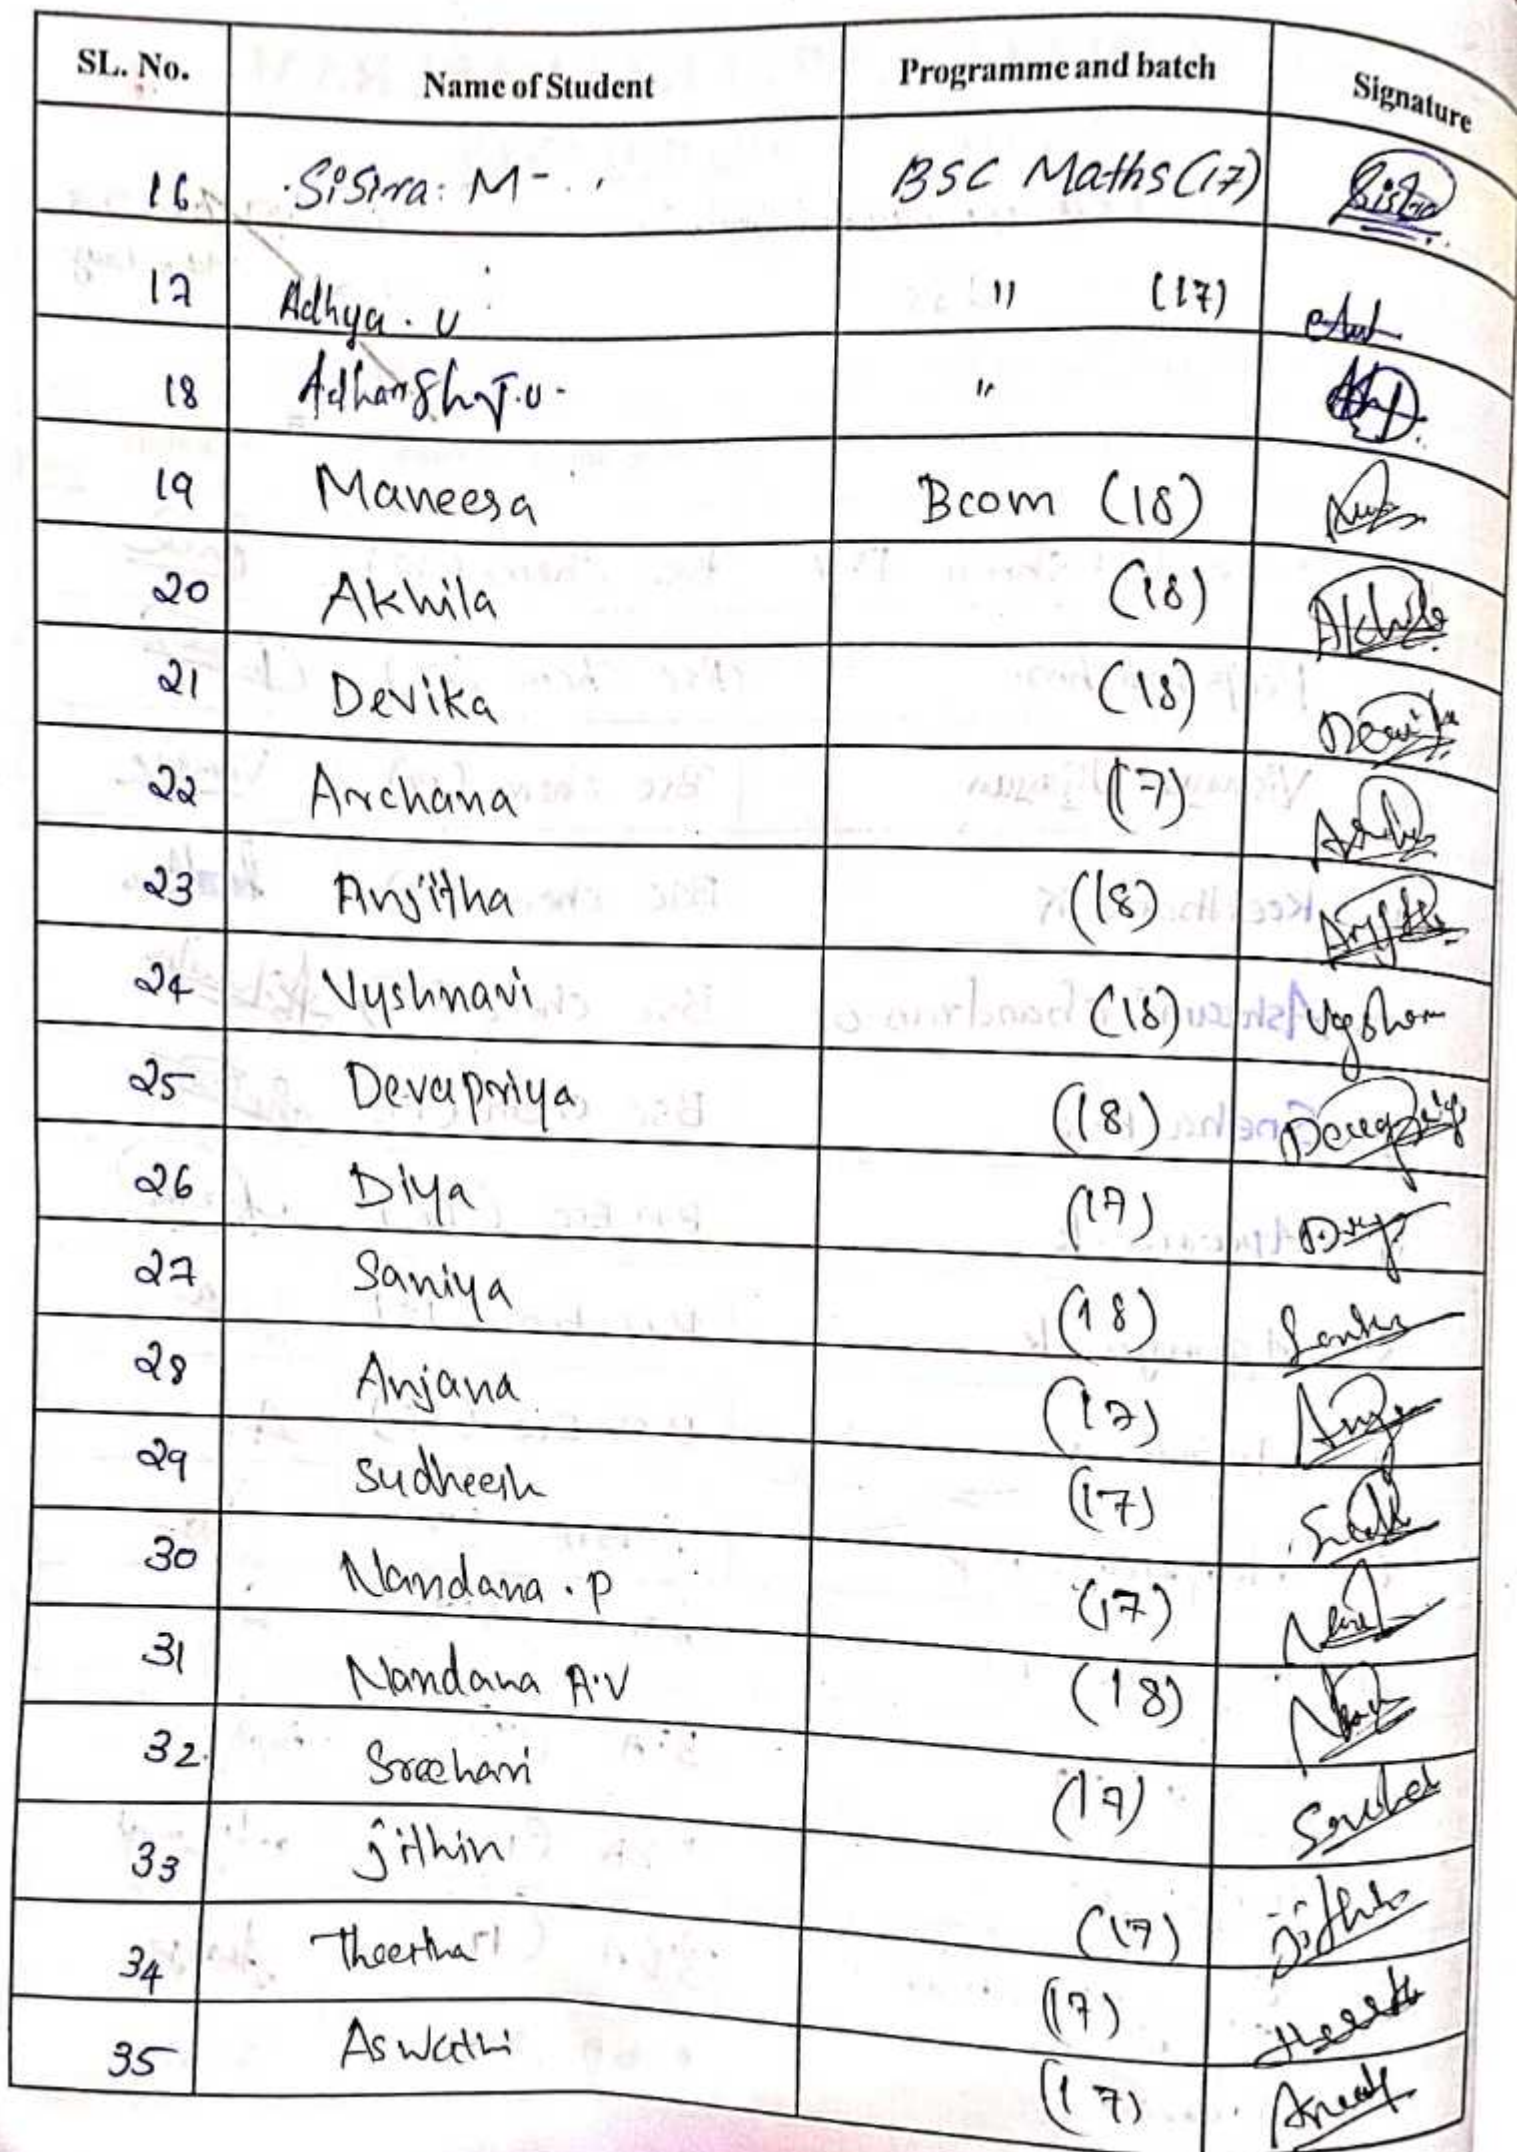 SL. No. Name of Student Programme and batch Signature
16 Sisira. M BSC Maths (17)
17 Adhya. U " (17)
18 "
19 Maneesa Bcom (18)
20 Akhila (18) Akhila
21 Devika (18) Devika
22 Archana (17)
23 Anjitha (18)
24 Vyshnavi (18)
25 Devapriya (18)
26 Diya (17)
27 Saniya (18)
28 Anjana (17)
29 Sudheesh (17)
30 Nandana. P (17)
31 Nandana A.V (18)
32 Sreehari (17)
33 Jithin (17)
34 Theertha (17)
35 Aswathi (17)